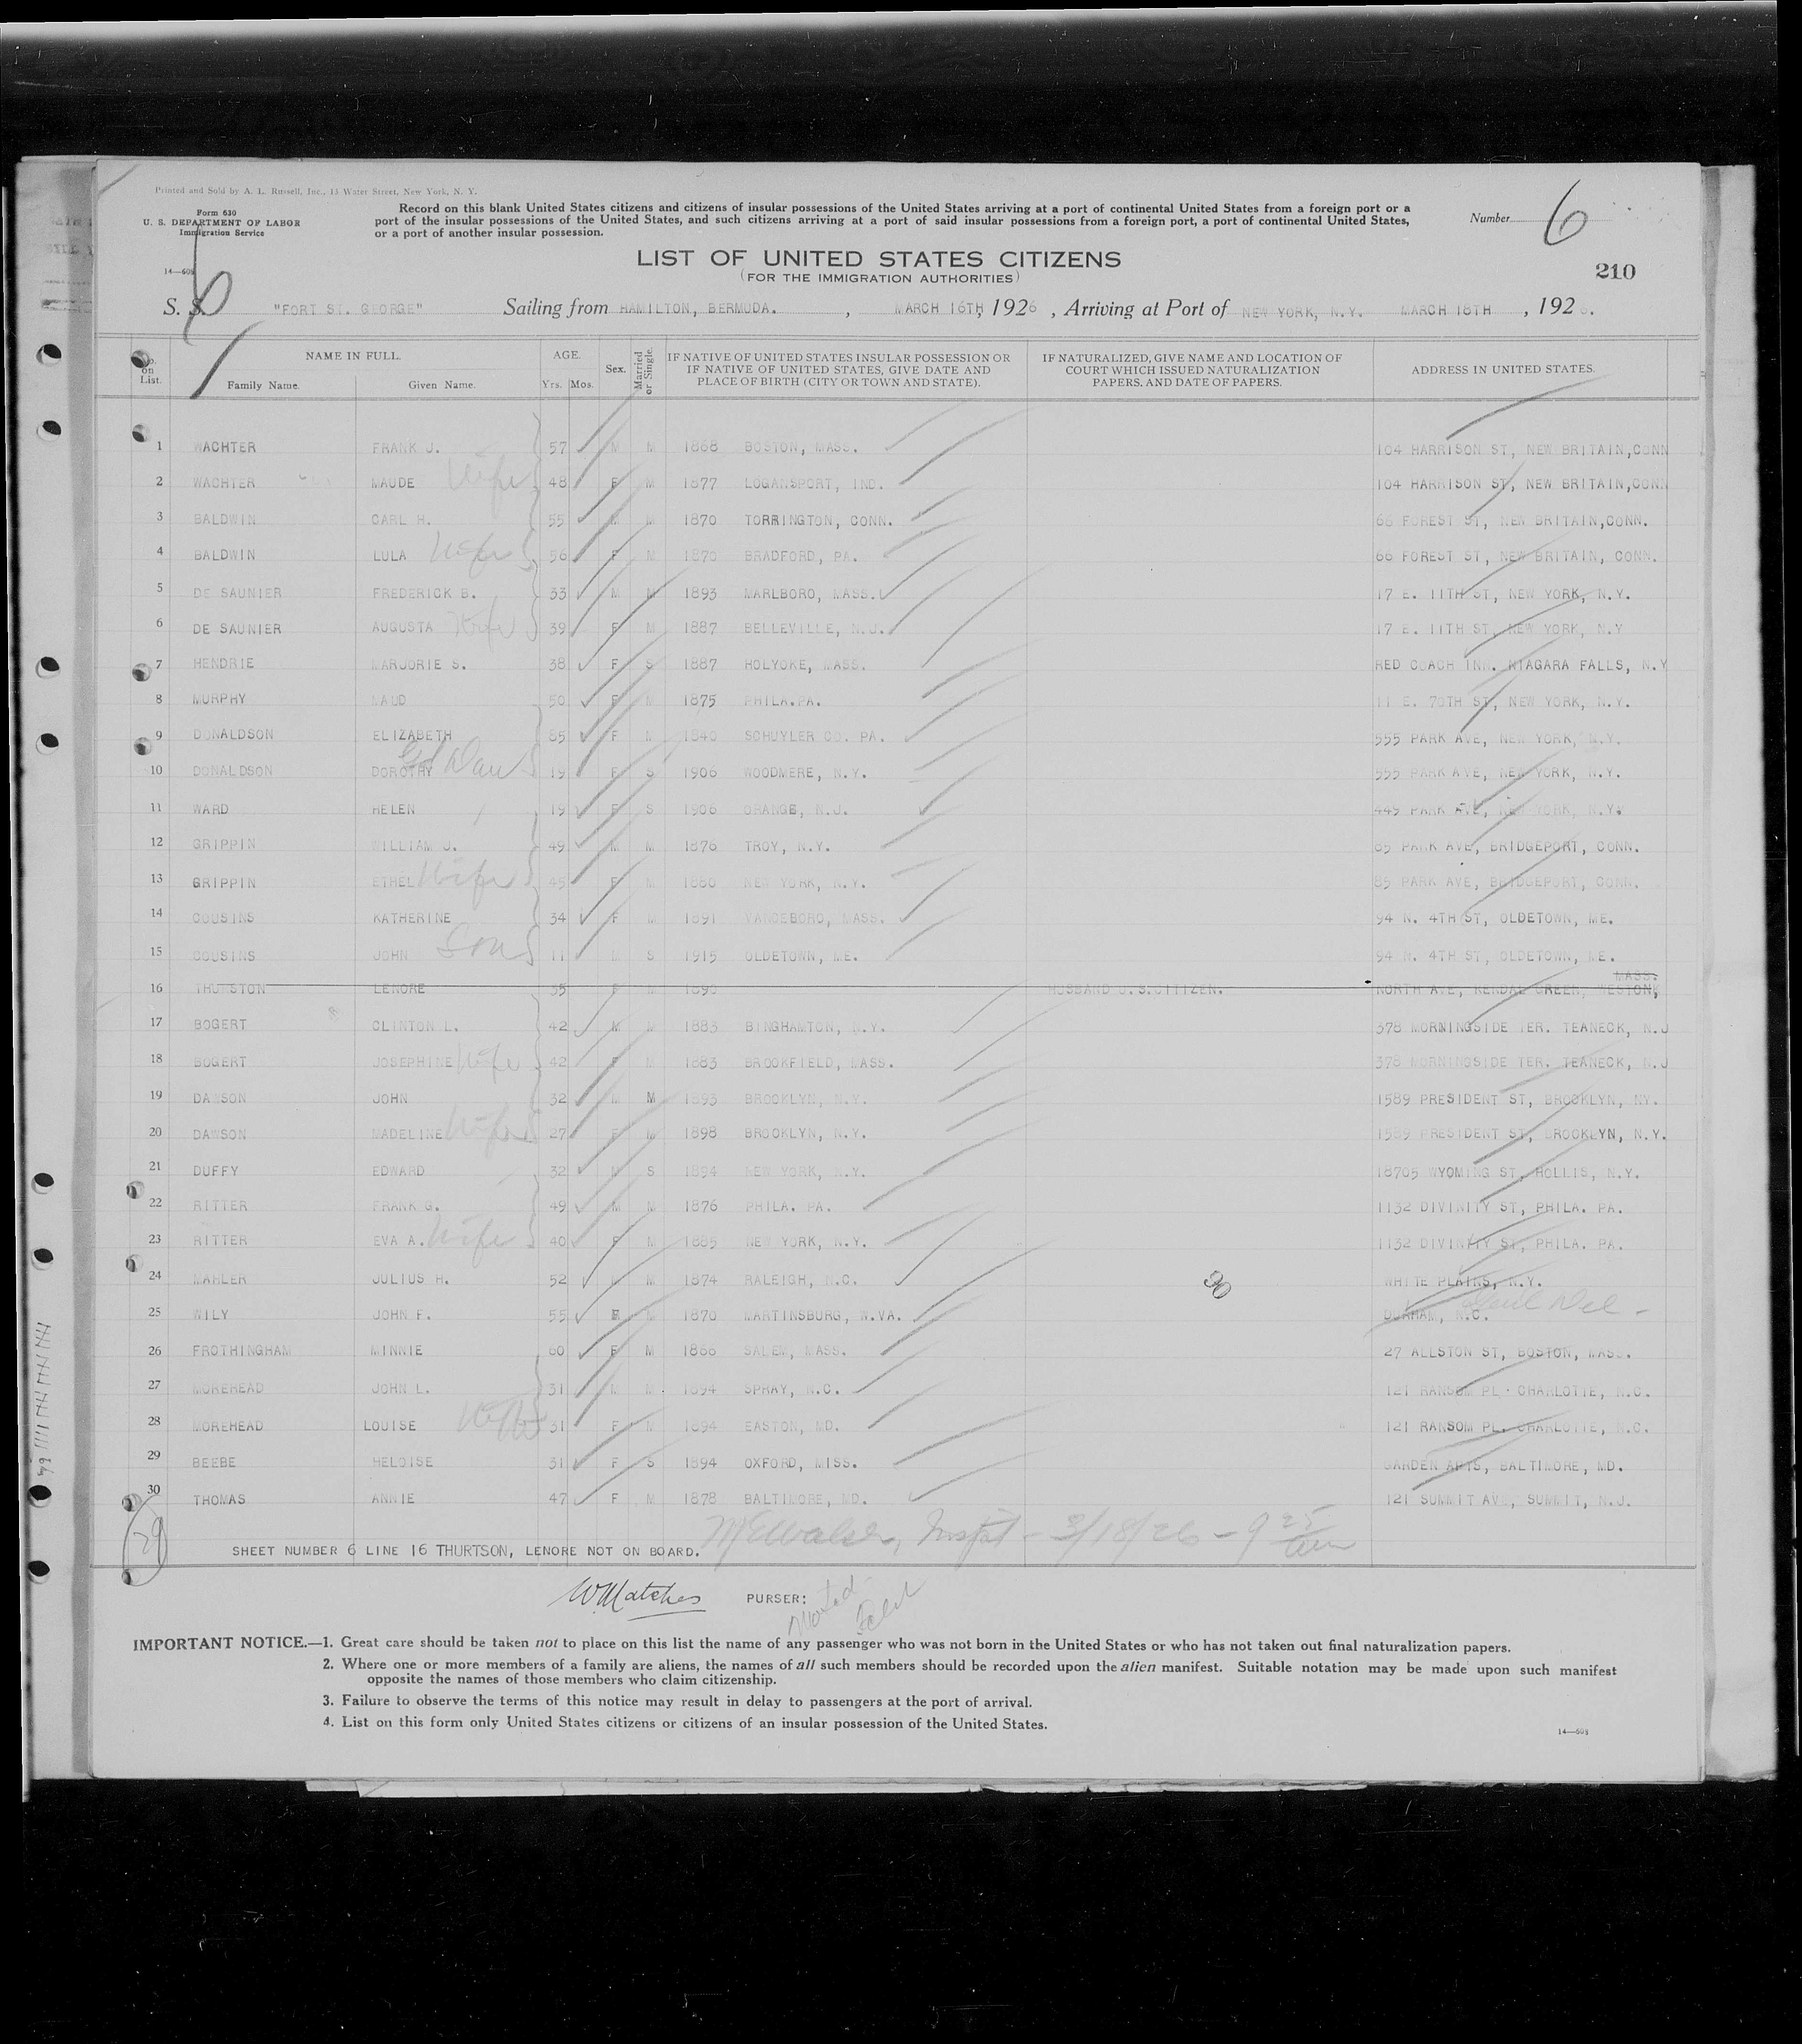 Printed and Sold by A. L. Russell, Inc., 15 Water Street, New York, N. Y.
Form 630
U. S. DEPARTMENT OF LABOR
Immigration Service
14—608
Record on this blank United States citizens and citizens of insular possessions of the United States arriving at a port of continental United States from a foreign port or a
port of the insular possessions of the United States, and such citizens arriving at a port of said insular possessions from a foreign port, a port of continental United States,
or a port of another insular possession.
Number 6
LIST OF UNITED STATES CITIZENS
(FOR THE IMMIGRATION AUTHORITIES)
210
6
S. S. "FORT ST. GEORGE" Sailing from HAMILTON, BERMUDA. , MARCH 16TH, 1926 , Arriving at Port of NEW YORK, N.Y. MARCH 18TH , 1926.
No. on List. NAME IN FULL. Family Name. Given Name. AGE. Yrs. Mos. Sex. Married or Single. IF NATIVE OF UNITED STATES INSULAR POSSESSION OR IF NATIVE OF UNITED STATES, GIVE DATE AND PLACE OF BIRTH (CITY OR TOWN AND STATE). IF NATURALIZED, GIVE NAME AND LOCATION OF COURT WHICH ISSUED NATURALIZATION PAPERS, AND DATE OF PAPERS. ADDRESS IN UNITED STATES.
1 WACHTER FRANK J. 57 M M 1868 BOSTON, MASS. 104 HARRISON ST, NEW BRITAIN,CONN
2 WACHTER MAUDE Wife 48 F M 1877 LOGANSPORT, IND. 104 HARRISON ST, NEW BRITAIN,CONN
3 BALDWIN CARL H. 55 M M 1870 TORRINGTON, CONN. 66 FOREST ST, NEW BRITAIN,CONN.
4 BALDWIN LULA Wife 56 F M 1870 BRADFORD, PA. 66 FOREST ST, NEW BRITAIN, CONN.
5 DE SAUNIER FREDERICK B. 33 M M 1893 MARLBORO, MASS. 17 E. 11TH ST, NEW YORK, N.Y.
6 DE SAUNIER AUGUSTA Wife 39 F M 1887 BELLEVILLE, N.J. 17 E. 11TH ST, NEW YORK, N.Y
7 HENDRIE MARJORIE S. 38 F S 1887 HOLYOKE, MASS. RED COACH INN. NIAGARA FALLS, N.Y
8 MURPHY MAUD 50 F M 1875 PHILA.PA. 11 E. 70TH ST, NEW YORK, N.Y.
9 DONALDSON ELIZABETH 85 F M 1840 SCHUYLER CO. PA. 555 PARK AVE, NEW YORK, N.Y.
10 DONALDSON DOROTHY Gd Dau 19 F S 1906 WOODMERE, N.Y. 555 PARK AVE, NEW YORK, N.Y.
11 WARD HELEN 19 F S 1906 ORANGE, N.J. 449 PARK AVE, NEW YORK, N.Y.
12 GRIPPIN WILLIAM J. 49 M M 1876 TROY, N.Y. 85 PARK AVE, BRIDGEPORT, CONN.
13 GRIPPIN ETHEL Wife 45 F M 1880 NEW YORK, N.Y. 85 PARK AVE, BRIDGEPORT, CONN.
14 COUSINS KATHERINE 34 F M 1891 VANCEBORO, MASS. 94 N. 4TH ST, OLDETOWN, ME.
15 COUSINS JOHN Son 11 M S 1915 OLDETOWN, ME. 94 N. 4TH ST, OLDETOWN, ME.
MASS.
16 THURSTON LENORE 35 F M 1890 HUSBAND U.S.CITIZEN. NORTH AVE, KENDAL GREEN, WESTON,
17 BOGERT CLINTON L. 42 M M 1883 BINGHAMTON, N.Y. 378 MORNINGSIDE TER. TEANECK, N.J
18 BOGERT JOSEPHINE Wife 42 F M 1883 BROOKFIELD, MASS. 378 MORNINGSIDE TER. TEANECK, N.J
19 DAWSON JOHN 32 M M 1893 BROOKLYN, N.Y. 1589 PRESIDENT ST, BROOKLYN, NY.
20 DAWSON MADELINE Wife 27 F M 1898 BROOKLYN, N.Y. 1589 PRESIDENT ST, BROOKLYN, N.Y.
21 DUFFY EDWARD 32 M S 1894 NEW YORK, N.Y. 18705 WYOMING ST, HOLLIS, N.Y.
22 RITTER FRANK G. 49 M M 1876 PHILA. PA. 1132 DIVINITY ST, PHILA. PA.
23 RITTER EVA A. Wife 40 F M 1885 NEW YORK, N.Y. 1132 DIVINITY ST, PHILA. PA.
24 MAHLER JULIUS H. 52 M M 1874 RALEIGH, N.C. 30 WHITE PLAINS, N.Y.
25 WILY JOHN F. 55 M M 1870 MARTINSBURG, W.VA. DURHAM, N.C. Genl Del -
26 FROTHINGHAM MINNIE 60 F M 1866 SALEM, MASS. 27 ALLSTON ST, BOSTON, MASS.
27 MOREHEAD JOHN L. 31 M M 1894 SPRAY, N.C. 121 RANSOM PL. CHARLOTTE, N.C.
28 MOREHEAD LOUISE Wife 31 F M 1894 EASTON, MD. 121 RANSOM PL. CHARLOTTE, N.C.
29 BEEBE HELOISE 31 F S 1894 OXFORD, MISS. GARDEN APTS, BALTIMORE, MD.
30 THOMAS ANNIE 47 F M 1878 BALTIMORE, MD. 121 SUMMIT AVE, SUMMIT, N.J.
29
SHEET NUMBER 6 LINE 16 THURTSON, LENORE NOT ON BOARD. 3/18/26 - 9 25
W Matches PURSER:
IMPORTANT NOTICE.—1. Great care should be taken not to place on this list the name of any passenger who was not born in the United States or who has not taken out final naturalization papers.
2. Where one or more members of a family are aliens, the names of all such members should be recorded upon the alien manifest. Suitable notation may be made upon such manifest
opposite the names of those members who claim citizenship.
3. Failure to observe the terms of this notice may result in delay to passengers at the port of arrival.
4. List on this form only United States citizens or citizens of an insular possession of the United States.
14—608